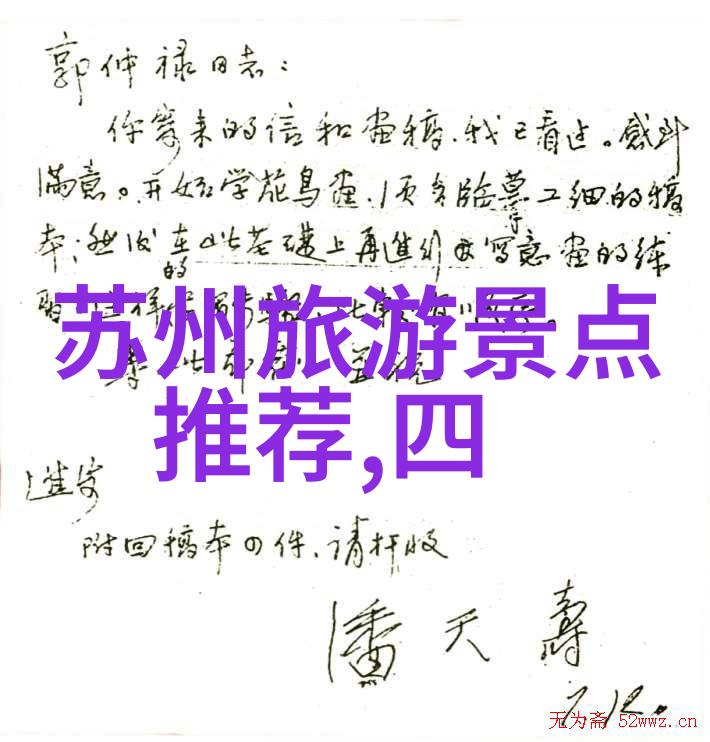 郭仲禄同志：
你寄来的信和画稿，我已看过。感到
满意。开始学花鸟画，须多临摹工细的稿
本；然后在此基礎上再進行写意画的练
的
習
苏州旅游景点
推荐,四
此
進安
附回稿本四件、请检收
潘天壽
7.12.
无为斋 52wwz.cn